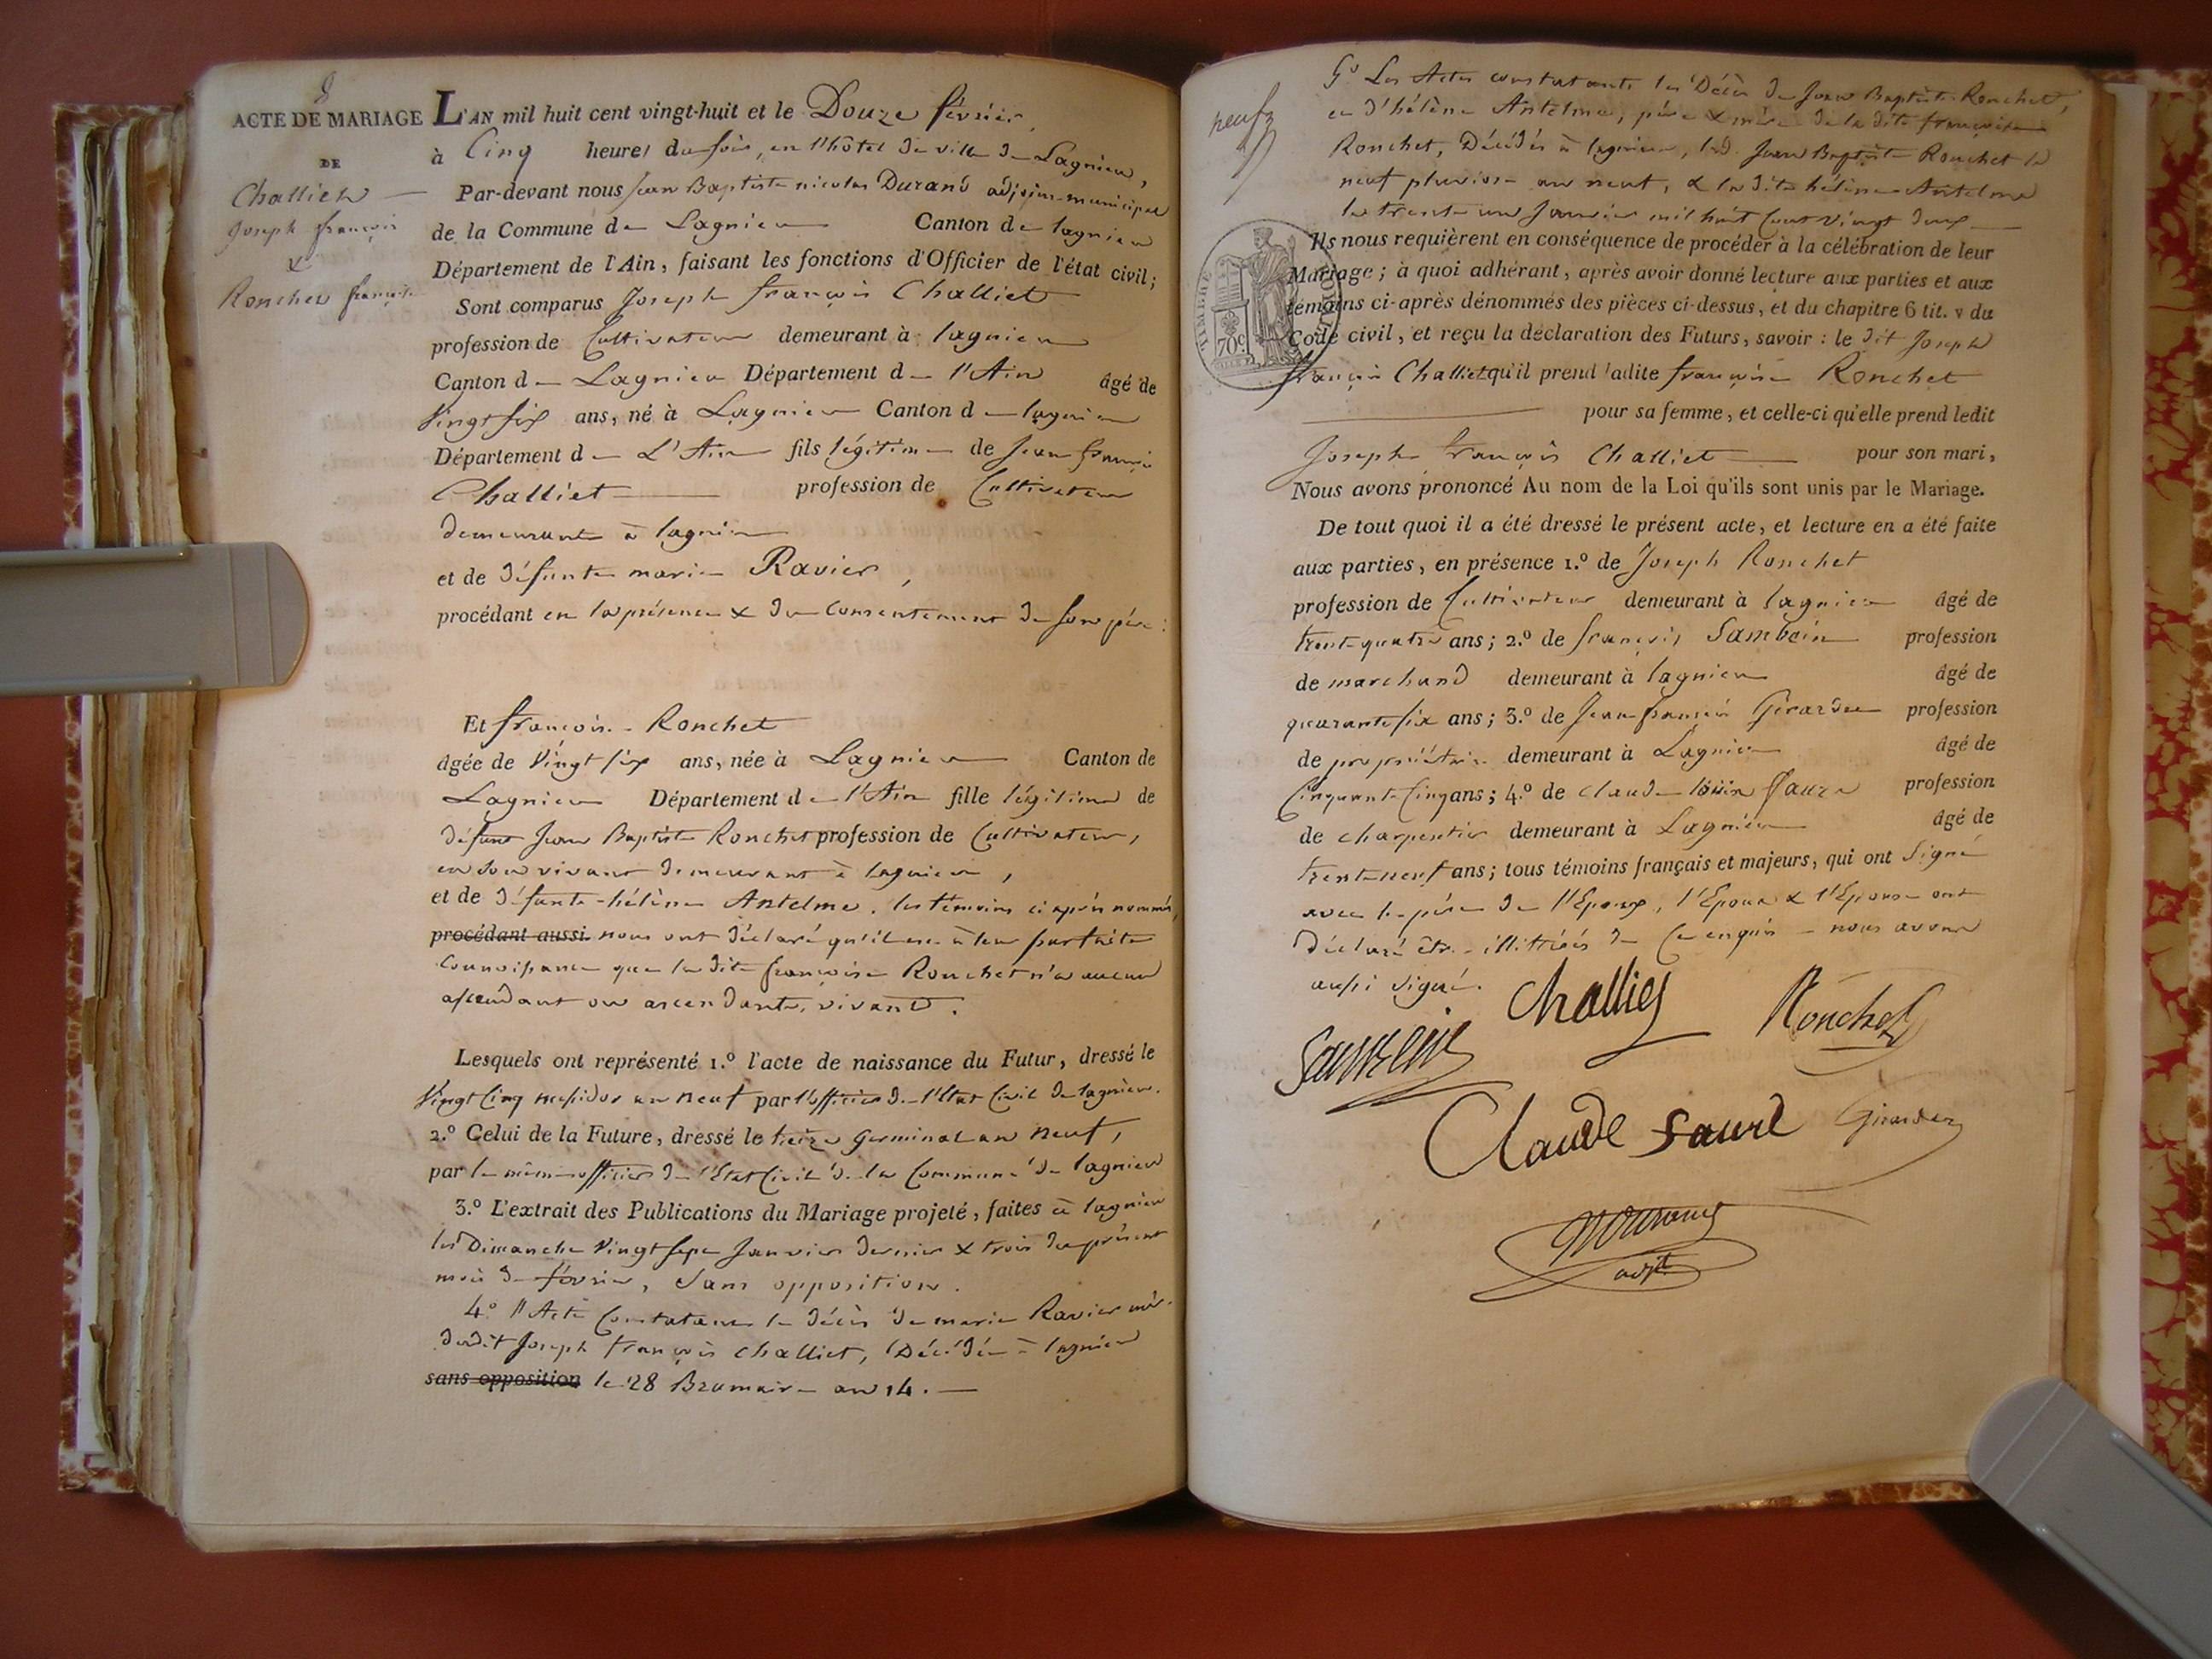 8
ACTE DE MARIAGE
DE
Challiet
Joseph françois
&
Ronchet françoise
L'AN mil huit cent vingt-huit et le Douze février,
à Cinq heures du soir, en l'hôtel de ville de Lagnieu,
Par-devant nous Jean Baptiste nicolas Durand adjoint municipal
de la Commune de Lagnieu Canton de lagnieu
Département de l'Ain, faisant les fonctions d'Officier de l'état civil;
Sont comparus Joseph françois Challiet
profession de Cultivateur demeurant à lagnieu
Canton de Lagnieu Département de l'Ain âgé de
Vingt six ans, né à Lagnieu Canton de lagnieu
Département de L'Ain fils légitime de Jean françois
Challiet profession de Cultivateur
demeurant à lagnieu
et de défunte marie Ravier,
procédant en la présence & du Consentement de son père:
Et françoise Ronchet
âgée de Vingt six ans, née à Lagnieu Canton de
Lagnieu Département de l'Ain fille légitime de
défunt Jean Baptiste Ronchet profession de Cultivateur,
en son vivant demeurant à lagnieu,
et de défunte hélène Antelme. les témoins ci après nommés,
procédant aussi nous ont déclaré qu'il est à leur parfaite
Connoissance que la dite françoise Ronchet n'a aucun
ascendant ou ascendante vivant.
Lesquels ont représenté 1.º l'acte de naissance du Futur, dressé le
Vingt Cinq messidor an neuf par l'officier de l'Etat Civil de lagnieu.
2.º Celui de la Future, dressé le treize germinal an neuf,
par le même officier de l'Etat Civil de la Commune de lagnieu
3.º L'extrait des Publications du Mariage projeté, faites à lagnieu
les Dimanche Vingt sept Janvier dernier & trois du présent
mois de février, sans opposition.
4.º l'Acte Constatant le décès de marie Ravier mère
dudit Joseph françois Challiet, Décédée à lagnieu
sans opposition le 28 Brumaire an 14.
neuf
5.º Les Actes constatants les Décès de Jean Baptiste Ronchet,
et d'hélène Antelme, père & mère de la dite françoise
Ronchet, Décédés à lagnieu, led. Jean Baptiste Ronchet le
neuf pluviose an neuf, & la dite hélène Antelme
le trente un Janvier mil huit Cent vingt deux
TIMBRE ROYAL
70c
Ils nous requièrent en conséquence de procéder à la célébration de leur
Mariage; à quoi adhérant, après avoir donné lecture aux parties et aux
témoins ci-après dénommés des pièces ci-dessus, et du chapitre 6 tit. v du
Code civil, et reçu la déclaration des Futurs, savoir: le dit Joseph
françois Challiet qu'il prend ladite françoise Ronchet
pour sa femme, et celle-ci qu'elle prend ledit
Joseph françois Challiet pour son mari,
Nous avons prononcé Au nom de la Loi qu'ils sont unis par le Mariage.
De tout quoi il a été dressé le présent acte, et lecture en a été faite
aux parties, en présence 1.º de Joseph Ronchet
profession de Cultivateur demeurant à lagnieu âgé de
trente quatre ans; 2.º de françois Sambein profession
de marchand demeurant à lagnieu âgé de
quarante six ans; 3.º de Jean françois Girardee profession
de propriétaire demeurant à Lagnieu âgé de
Cinquante Cinq ans; 4.º de claude louis faure profession
de charpentier demeurant à Lagnieu âgé de
trente neuf ans; tous témoins français et majeurs, qui ont signé
avec le père de l'Epoux, l'Epoux & l'Epouse ont
déclaré être illittérés de ce enquis - nous avons
aussi signé.
Challiet
Ronchet
Sambein
Claude faure
Girardee
Durand
adjt